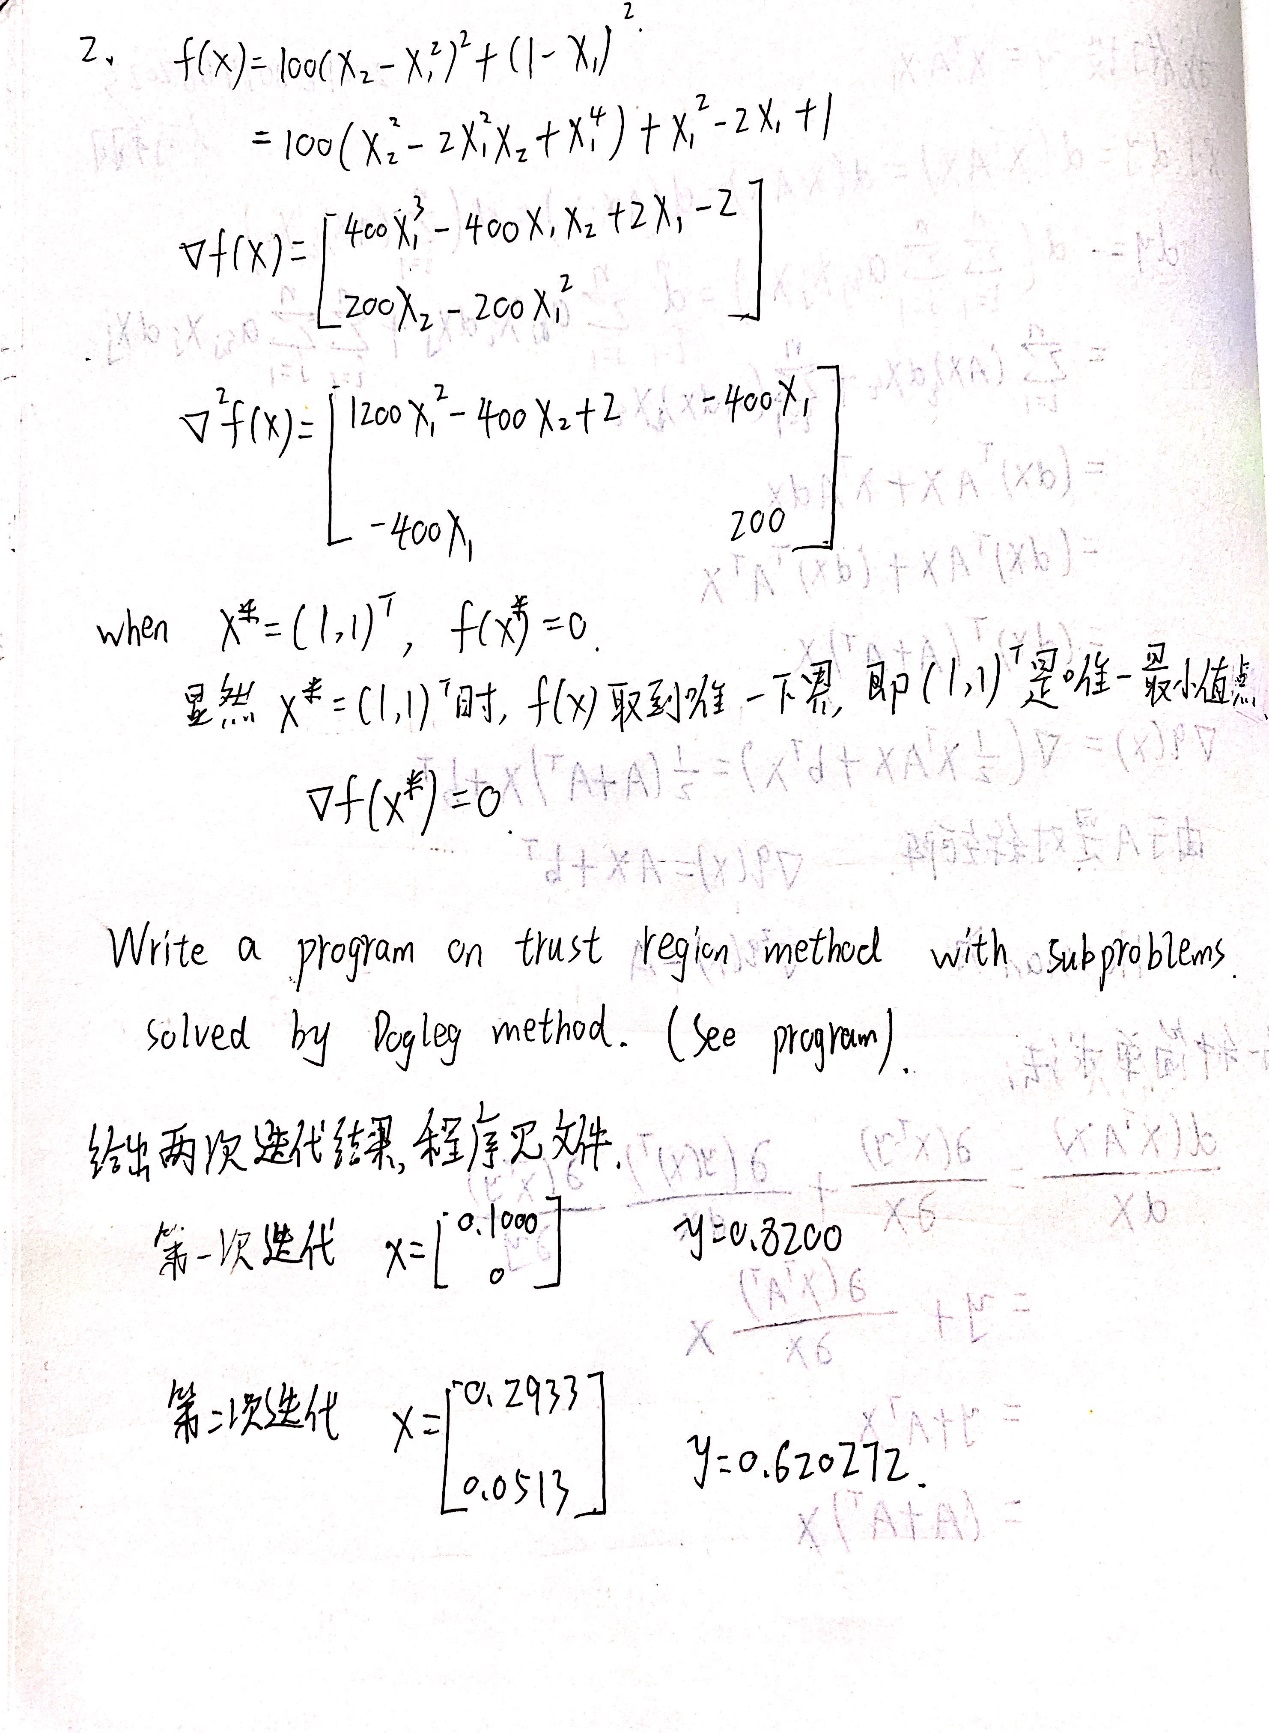 2. f(x)=100(x₂-x₁²)²+(1-x₁)².
=100(x₂²-2x₁²x₂+x₁⁴)+x₁²-2x₁+1
∇f(x)=[400x₁³-400x₁x₂+2x₁-2
200x₂-200x₁²]
∇²f(x)=[1200x₁²-400x₂+2 -400x₁
-400x₁ 200]
when x*=(1,1)ᵀ, f(x*)=0.
显然 x*=(1,1)ᵀ时, f(x)取到唯一下界, 即(1,1)ᵀ是唯一最小值点.
∇f(x*)=0.
Write a program on trust region method with subproblems
solved by Dogleg method. (See program).
给出两次迭代结果, 程序见文件.
第一次迭代 x=[0.1000
0] y=0.8200
第二次迭代 x=[0.2933
0.0513] y=0.620272.